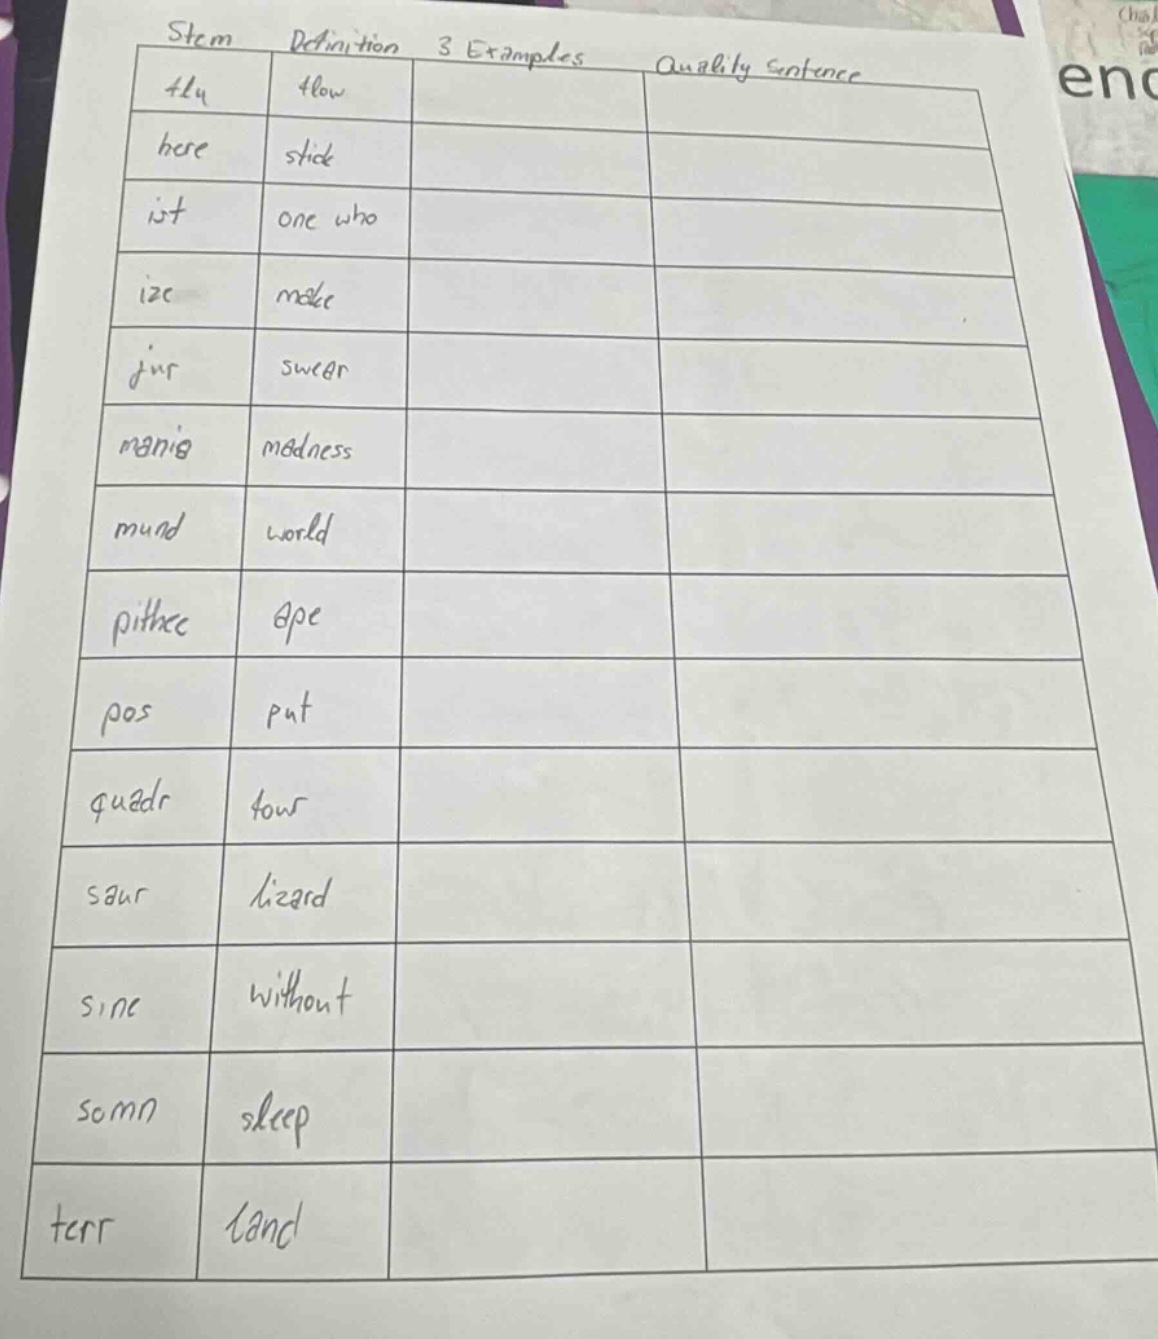 Stem Definition 3 Examples Quality Sentence
flu flow
here stick
ist one who
ize make
jur swear
mania madness
mund world
pithec ape
pos put
quadr four
saur lizard
sine without
somn sleep
terr land
enc